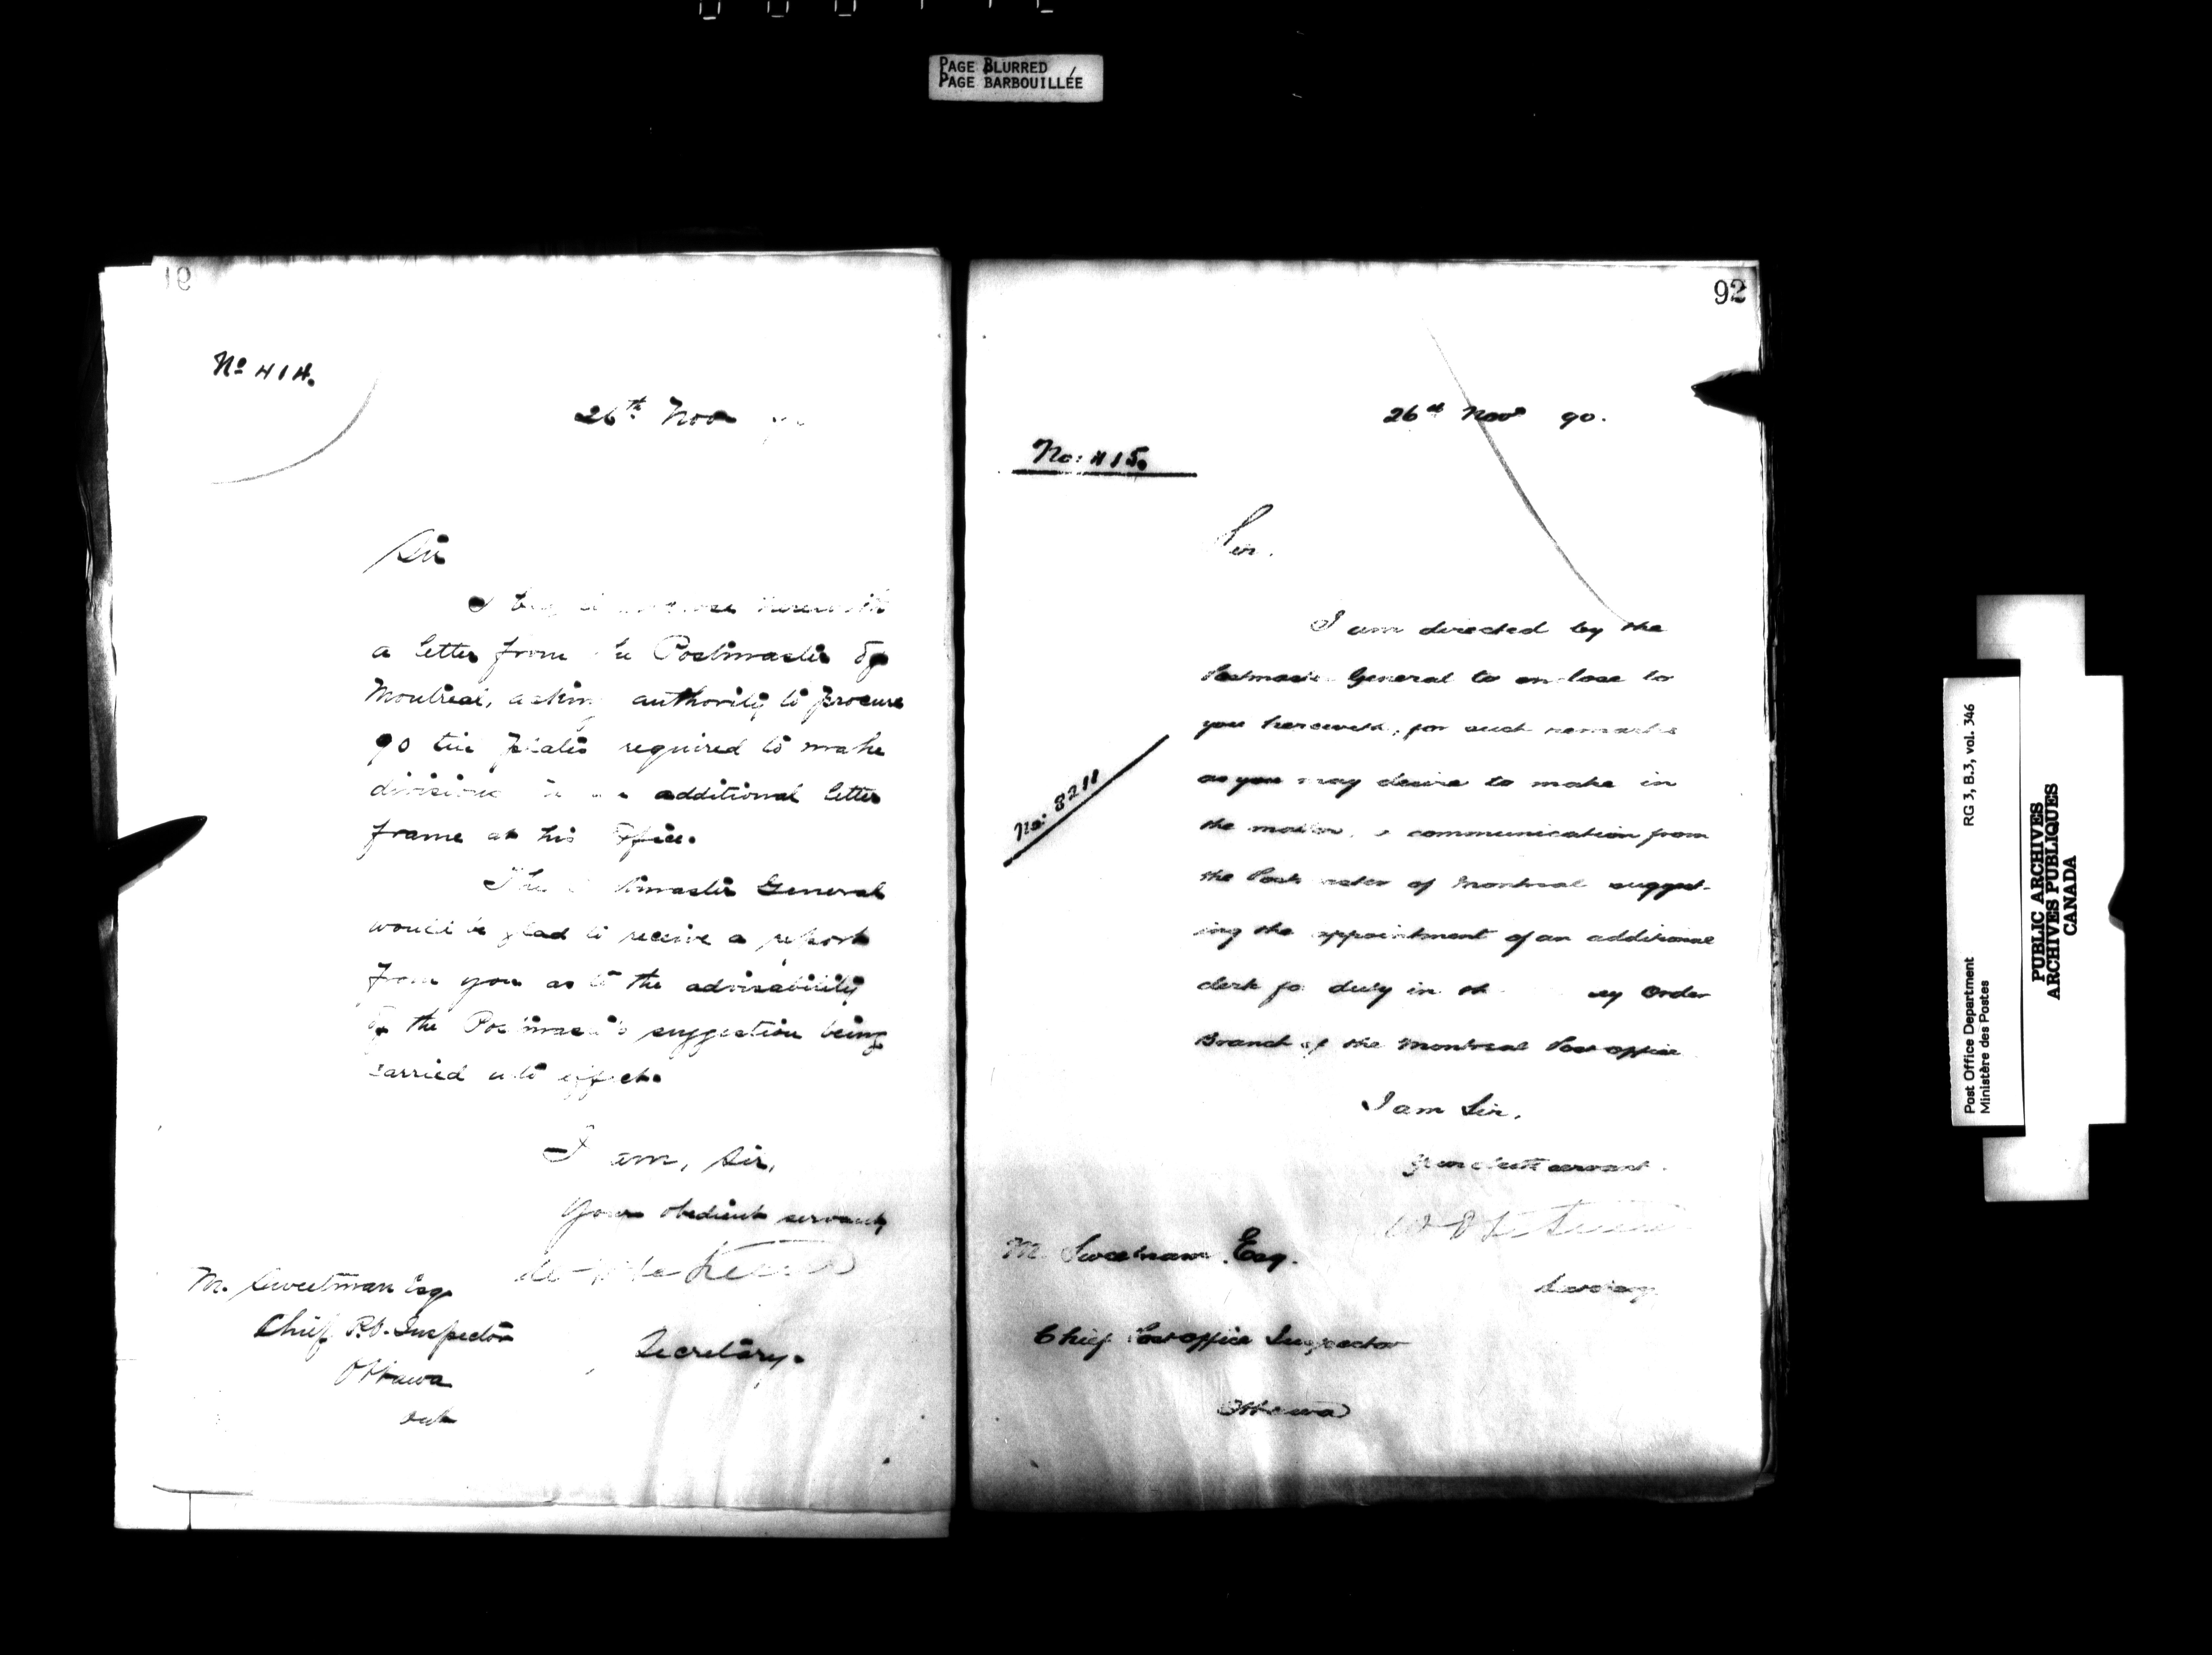 PAGE BLURRED
PAGE BARBOUILLÉE
91
No 414.
26th Nov 90
Sir
I beg to enclose herewith
a letter from the Postmaster of
Montreal, asking authority to procure
90 tin plates required to make
divisions in an additional letter
frame at his Office.
The Postmaster General
would be glad to receive a report
from you as to the advisability
of the Postmaster's suggestion being
carried into effect.
I am, Sir,
Your obedient servant
Secretary.
M. Sweetman Esq
Chief P.O. Inspector
Ottawa
92
26th Nov 90.
No: 415.
Sir.
I am directed by the
Postmaster General to enclose to
you herewith, for such remarks
as you may desire to make in
the matter, a communication from
the Postmaster of Montreal suggest-
ing the appointment of an additional
clerk for duty in the Money Order
Branch of the Montreal Post Office
No: 8211
I am Sir,
Your obedt servant.
Secretary
M. Sweetnam Esq.
Chief Post Office Inspector
Ottawa
Post Office Department
Ministère des Postes
RG 3, B.3, vol. 346
PUBLIC ARCHIVES
ARCHIVES PUBLIQUES
CANADA